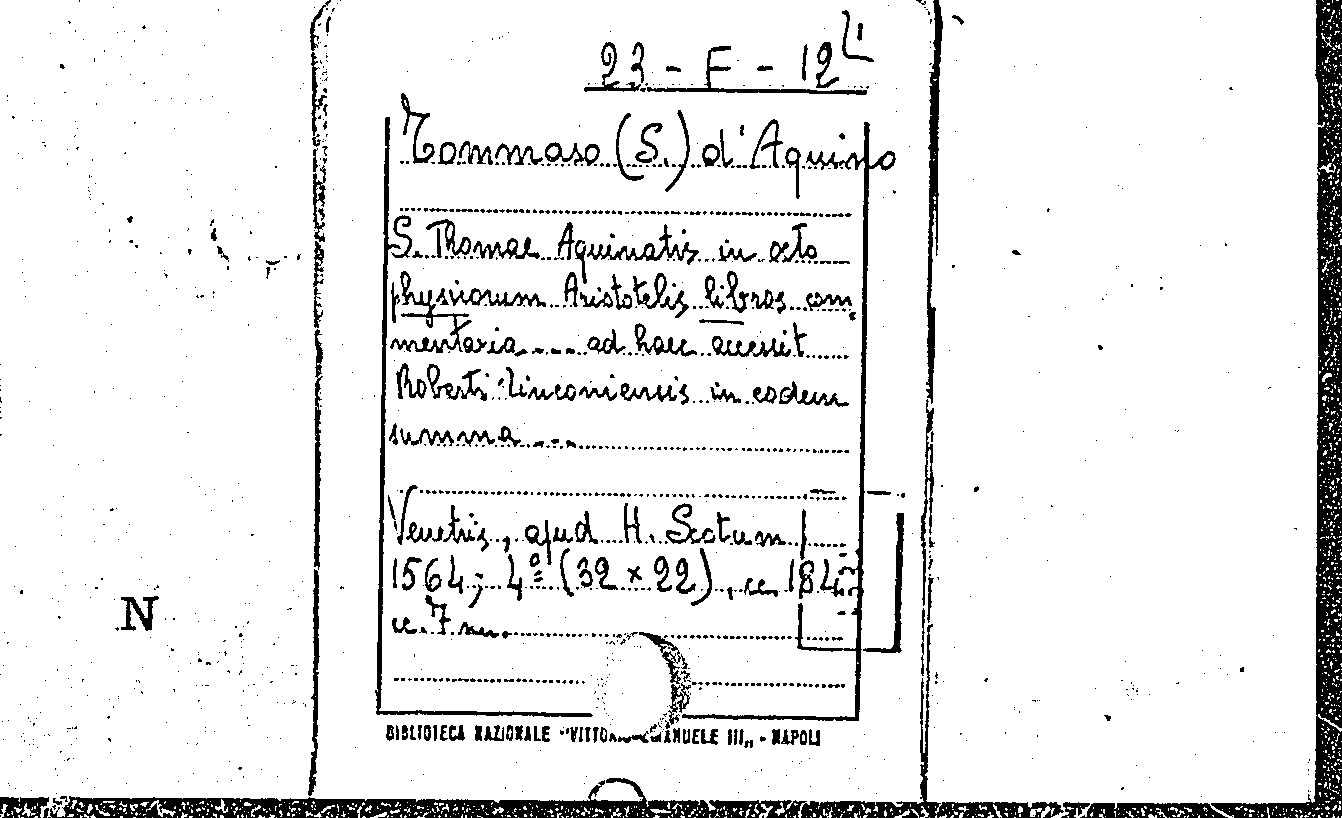 23 - F - 12
Tommaso (S.) d'Aquino
S. Thomae Aquinatis in octo
physicorum Aristotelis libros com
mentaria.... ad haec accessit
Roberti Linconiensis in eosdem
summa ...
Venetiis, apud H. Scotum
1564; 4º (32 × 22), cc 184
cc. 7 nn.
N
BIBLIOTECA NAZIONALE "VITTORIO EMANUELE III„ - NAPOLI